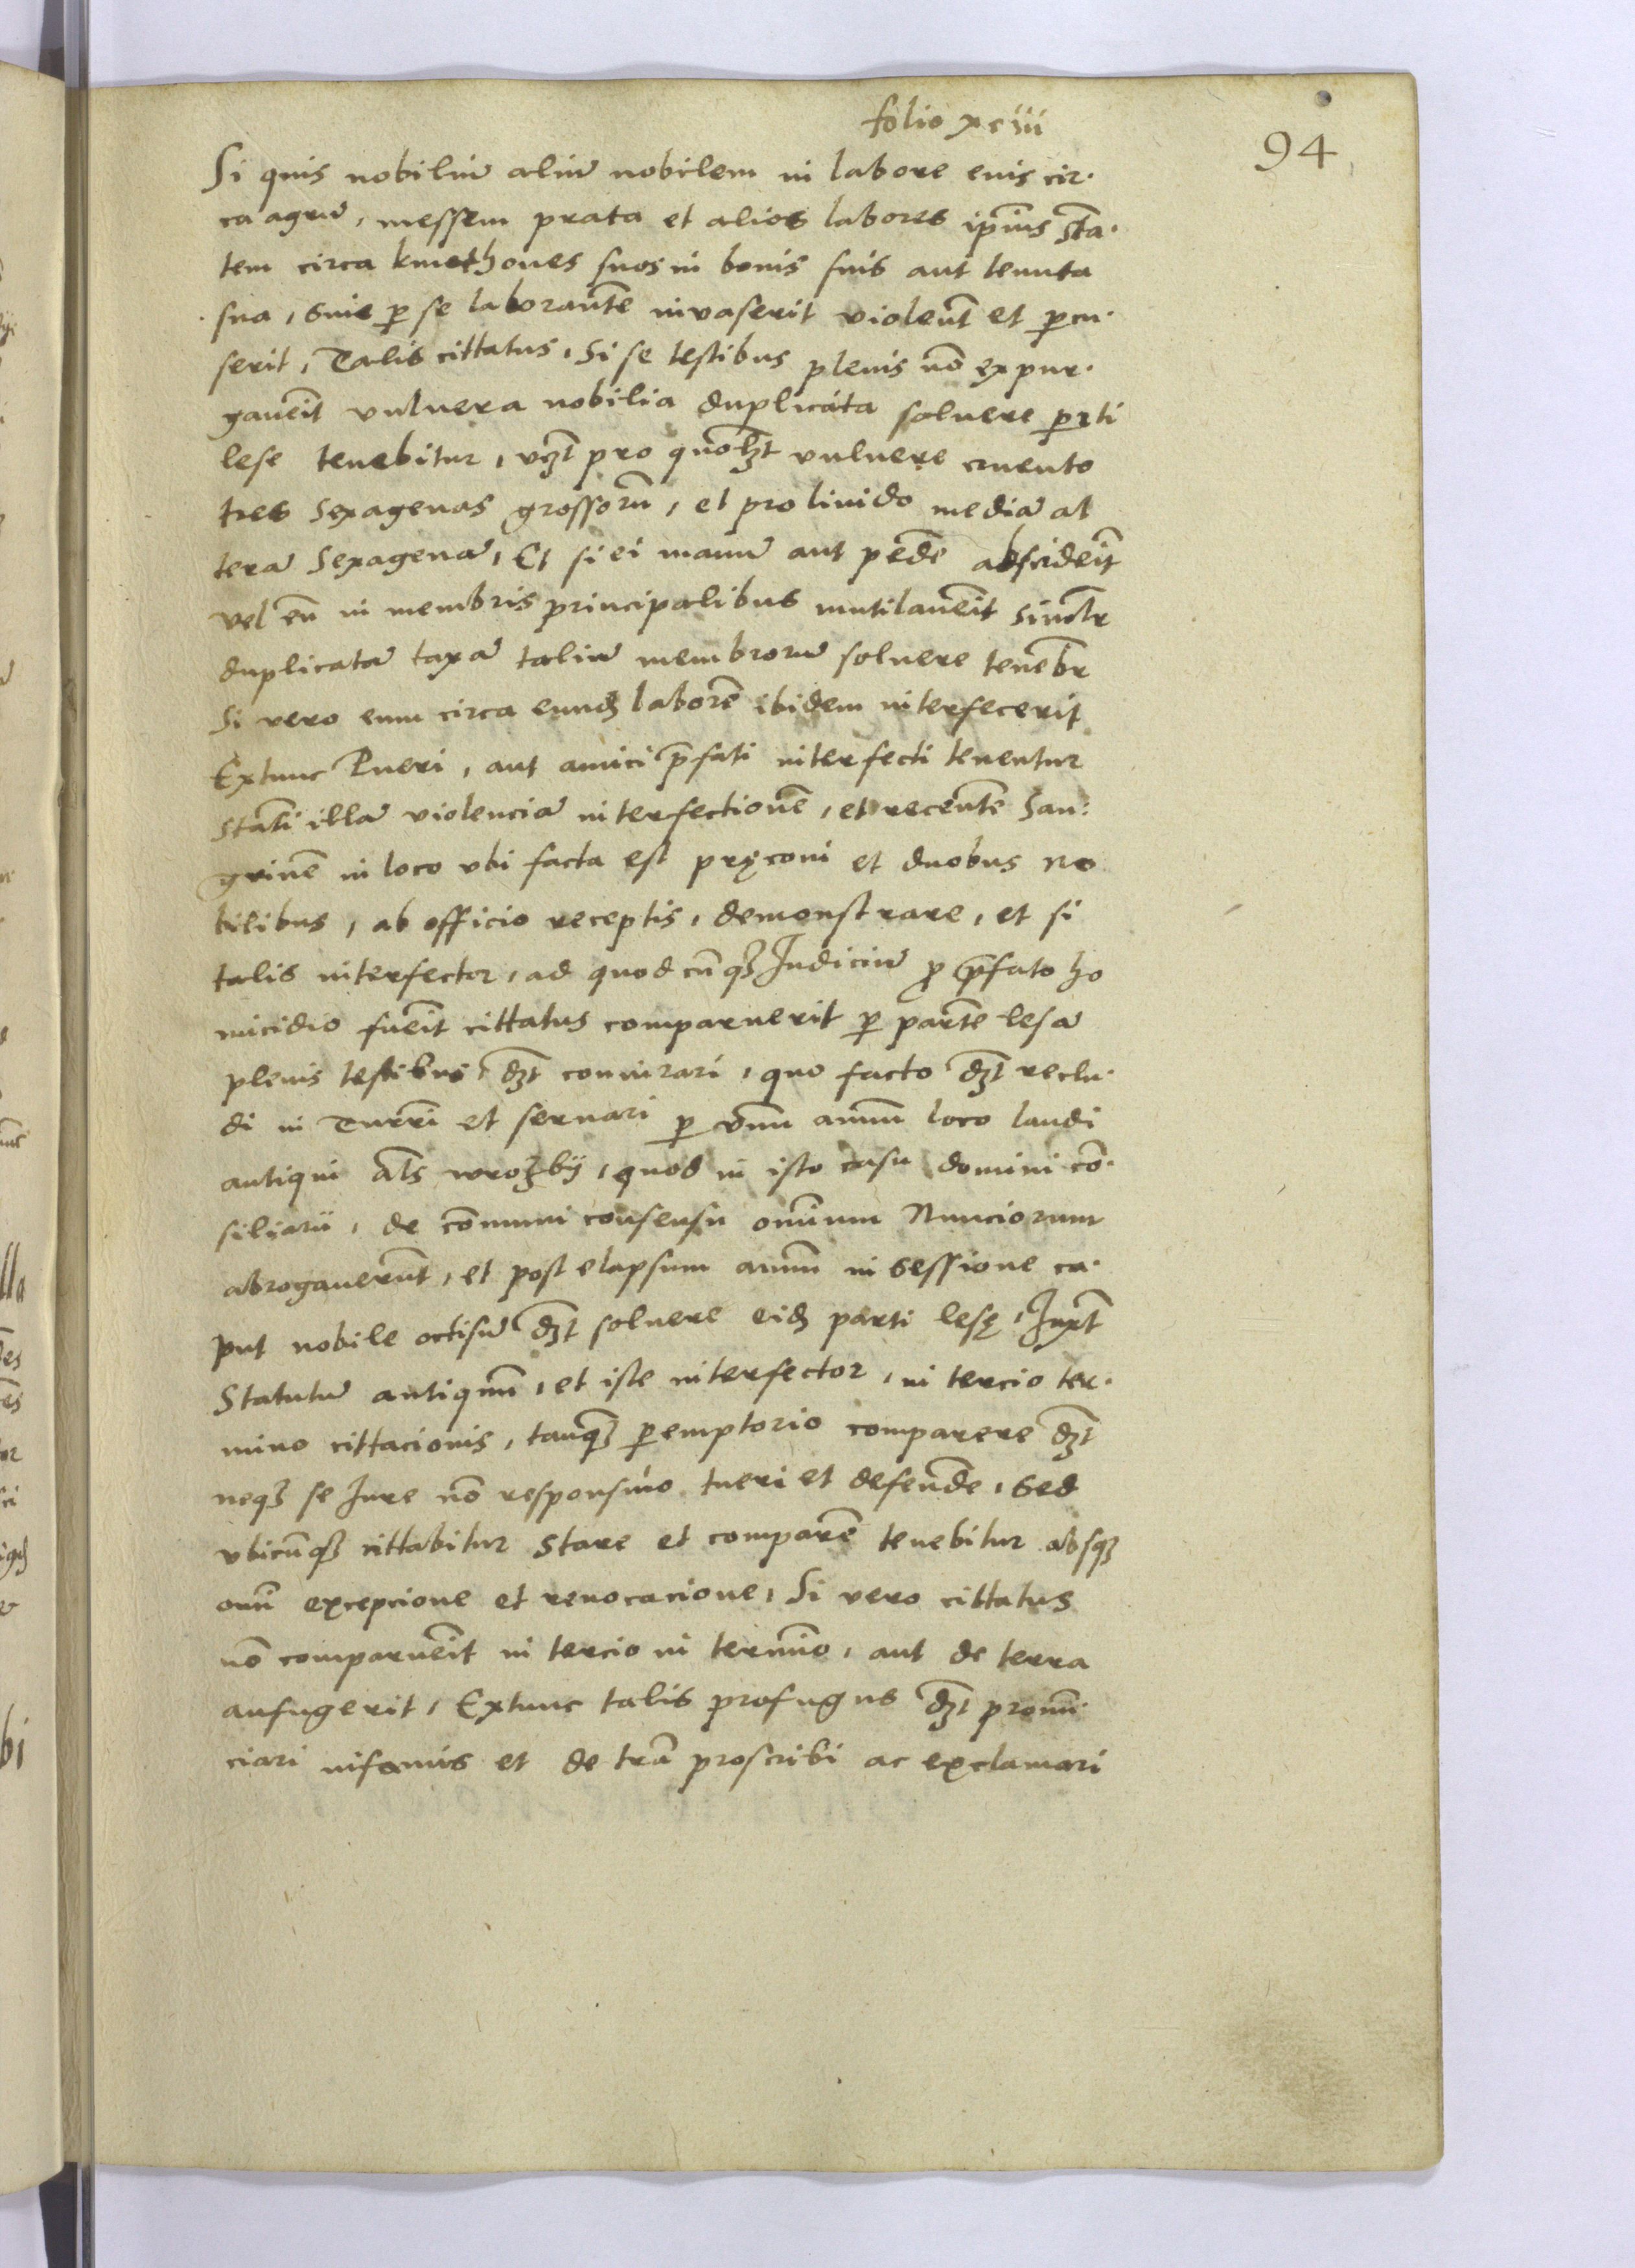 folio xciiii
94
Si quis nobiliū aliū nobilem in labore eius cir·
ca agrū, messem prata et alios labores ip̄ius stā·
tem circa kmethones suos in bonis suis aut tenuta
sua, siue ꝑ se laborantē inuaserit violent̄ et ꝑcu·
serit, Talis cittatus, Si se testibus plenis nō expur·
gauerit̄ vulnera nobilia duplicáta soluere ꝑti
lese tenebitur, vꝫt̄ pro quolꝫt̄ vulnere cruento
tres Sexagenas grossorū, et pro liuido mediā al
terā Sexagenā, Et si ei manū aut pedē abscideīt
vel eū in membris principalibus mutilaueīt simlr̄
duplicatā taxā taliū membrorū soluere tenebr̄
Si vero eum circa eundꝫ laborē ibidem interfecerit
Extunc Pueri, aut amici p̄fati interfecti tenentur
statī illā violenciā interfectionē, et recentē San:
guinē in loco vbi facta est pręconi et duobus no
bilibus, ab officio receptis, demonstrare, et si
talis interfector, ad quodcūqꝫ Iudiciū ꝓ p̄fato ho
micidio fueīt cittatus comparuerit ꝑ partē lesā
plenis testibus dꝫt̄ conuirari, quo facto dꝫt̄ reclu·
di in Turrī et seruari ꝑ vnū annū loco laudi
antiqui als̄ wrozby, quod in isto casu domini cō·
siliarii, de cōmuni consensu omnium Nunciorum
abrogauerūt, et post elapsum annū in sessione ca·
put nobile occisū dꝫt̄ soluere eidꝫ parti lesę, Juxt̄
Statutū antiquū, et iste interfector, in tercio ter·
mino cittacionis, tanqꝫ ꝑemptorio comparere dꝫt̄
neqꝫ se Jure nō responsiuo tueri et defendē, sed
vbicūqꝫ cittabitur stare et comparē tenebitur absqꝫ
omī excepcione et reuocacione, Si vero cittatus
nō comparueīt in tercio in termīo, aut de terra
aufugerit, Extunc talis profugus dꝫt̄ pronū·
ciari infamis et de trā proscribi ac exclamari